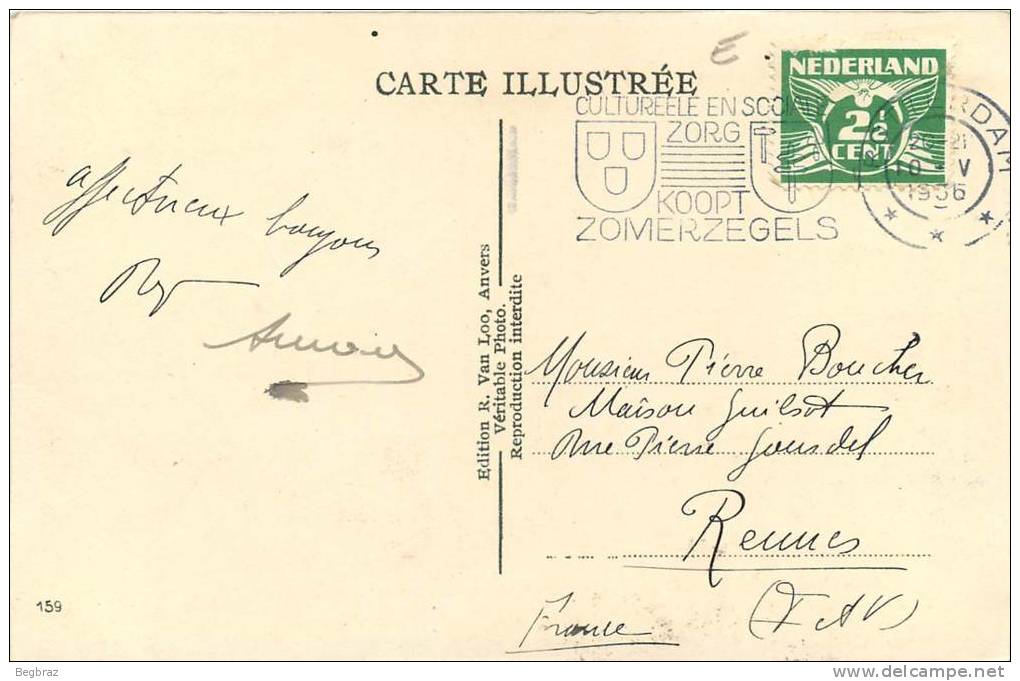 E
CARTE ILLUSTRÉE
NEDERLAND
2½
CENT
CULTUREELE EN SOCIALE
ZORG
KOOPT
ZOMERZEGELS
ERDAM
10 - V
1936
affectueux bonjours
Edition R. Van Loo, Anvers
Véritable Photo.
Reproduction interdite
Monsieur Pierre Boucher
Maison Guilsot
Rue Pierre Gourdel
Rennes
(I et V)
France
159
Begbraz
delcampe.net